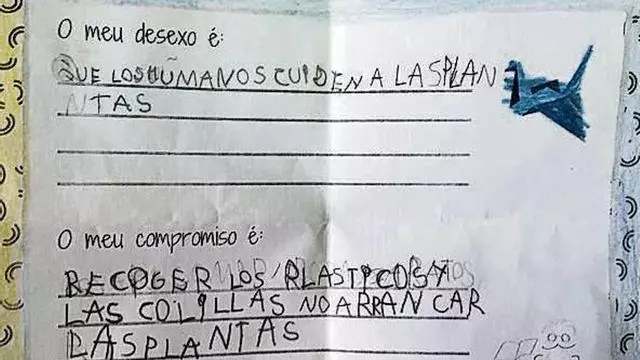 O meu desexo é:
QUE LOS HUMANOS CUIDEN A LAS PLAN
NTAS
O meu compromiso é:
RECOGER LOS PLASTICOS Y
LAS COLILLAS NO ARRANCAR
LAS PLANTAS